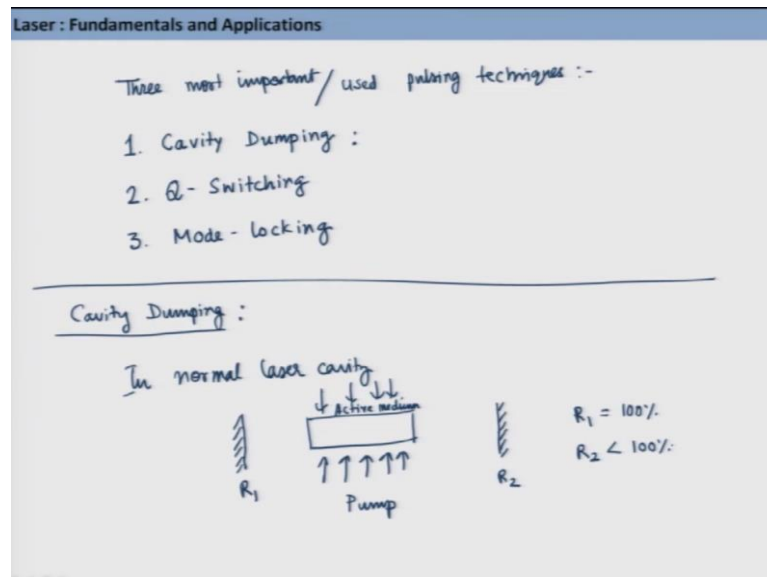 Laser : Fundamentals and Applications
Three most important/used pulsing techniques :-
1. Cavity Dumping :
2. Q - Switching
3. Mode - locking
Cavity Dumping :
In normal laser cavity
Active medium
R₁ = 100%.
R₂ < 100%.
R₁
R₂
Pump